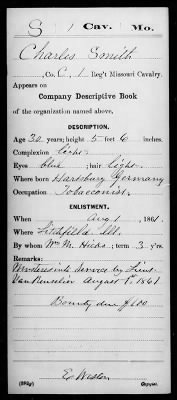 S 1 Cav. Mo.
Charles Smith
, Co. C, 1 Reg't Missouri Cavalry.
Appears on
Company Descriptive Book
of the organization named above.
DESCRIPTION.
Age 30 years; height 5 feet 6 inches.
Complexion light
Eyes blue ; hair light
Where born Germany
Occupation Tobacconist
ENLISTMENT.
When Aug 1 , 1861.
Where Litchfield Ill.
By whom Wm M. Hicks ; term 3 y'rs.
Remarks:
Mustered into Service by Lieut.
Van Rensselaer August 1st, 1861
Bounty due $100
Weston
Copyist.